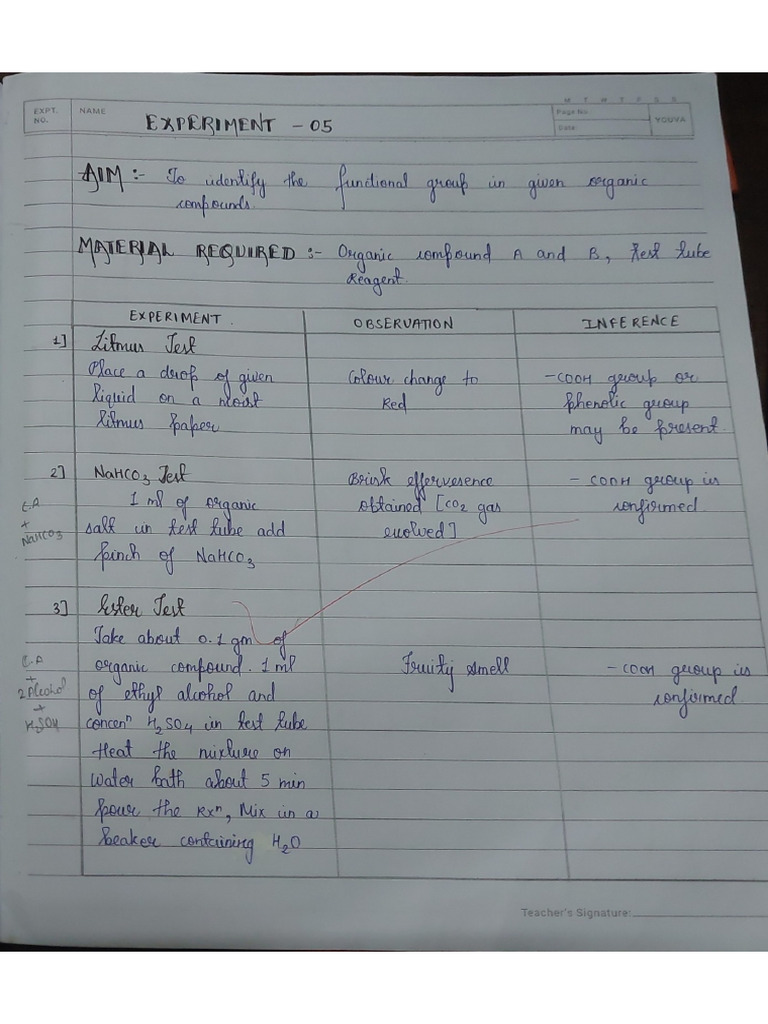 EXPT. NO.
NAME
M T W T F S S
Page No.
Date:
YOUVA
EXPERIMENT - 05
AIM :- To identify the functional group in given organic
compounds.
MATERIAL REQUIRED :- Organic compound A and B, test tube
Reagent.
EXPERIMENT OBSERVATION INFERENCE
1] Litmus Test
Place a drop of given
liquid on a moist
litmus paper
Colour change to
Red
-COOH group or
phenolic group
may be present
2] NaHCO3 Test
1 ml of organic
salt in test tube add
pinch of NaHCO3
+
NaHCO3
Brisk effervesence
obtained [CO2 gas
evolved]
- COOH group is
confirmed
3] Ester Test
Take about 0.1 gm of
organic compound. 1 ml
of ethyl alcohol and
concenⁿ H2SO4 in test tube
Heat the mixture on
Water bath about 5 min
pour the rxⁿ, Mix in a
beaker containing H2O
+
+
H2SO4
Fruity smell
- COOH group is
confirmed
Teacher's Signature: